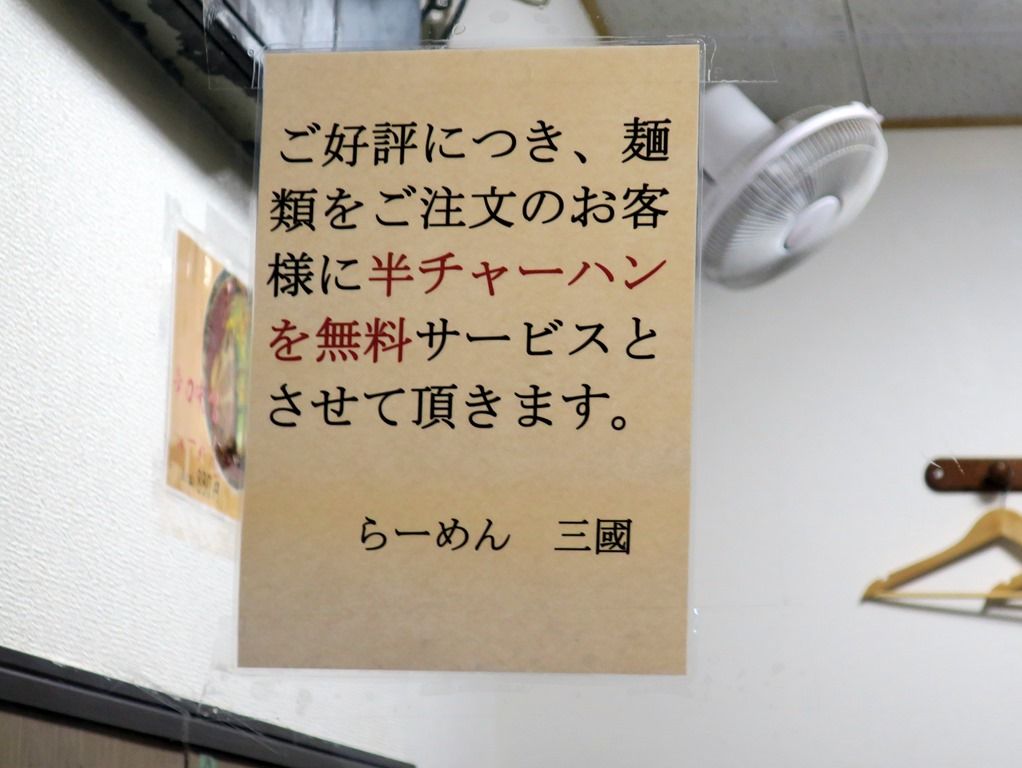 ご好評につき、麺
類をご注文のお客
様に半チャーハン
を無料サービスと
させて頂きます。
らーめん　三國